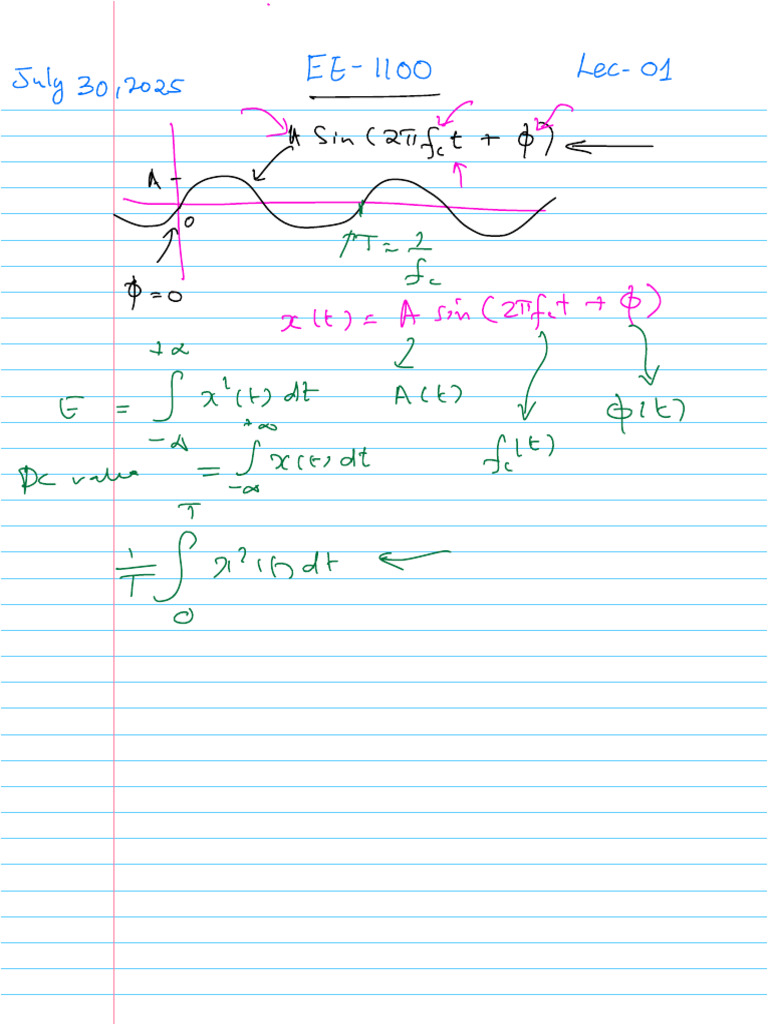 July 30, 2025 EE-1100 Lec-01
A Sin (2πf_c t + φ)
A
0
T = 1/f_c
φ = 0
x(t) = A sin (2πf_c t + φ)
E = ∫_{-∞}^{+∞} x²(t) dt A(t) φ(t)
DC value = ∫_{-∞}^{+∞} x(t) dt f_c(t)
1/T ∫_0^T x²(t) dt